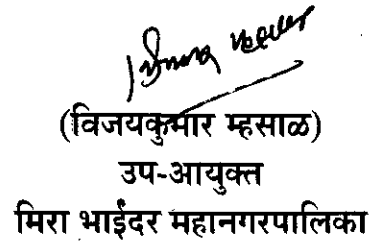 (विजयकुमार म्हसाळ)
उप-आयुक्त
मिरा भाईंदर महानगरपालिका